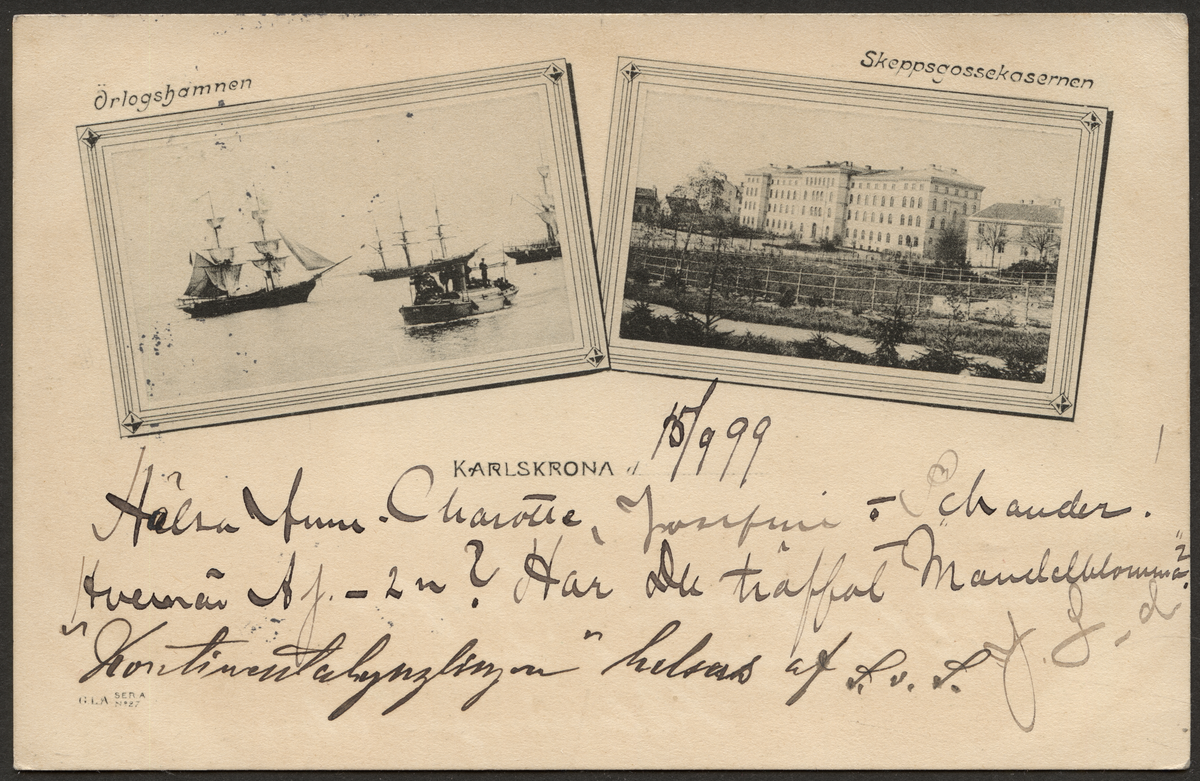 Örlogshamnen
Skeppsgossekasernen
KARLSKRONA d. 15/9 99
Hälsa Charotte, Josefine o Schander.
Hvem är A J. - 2 n? Har Du träffat "Mandelblomma"?
"Kontinentalynglingen" helsas af S. v. S. J. G-d
G.L.A SER.A
No 27